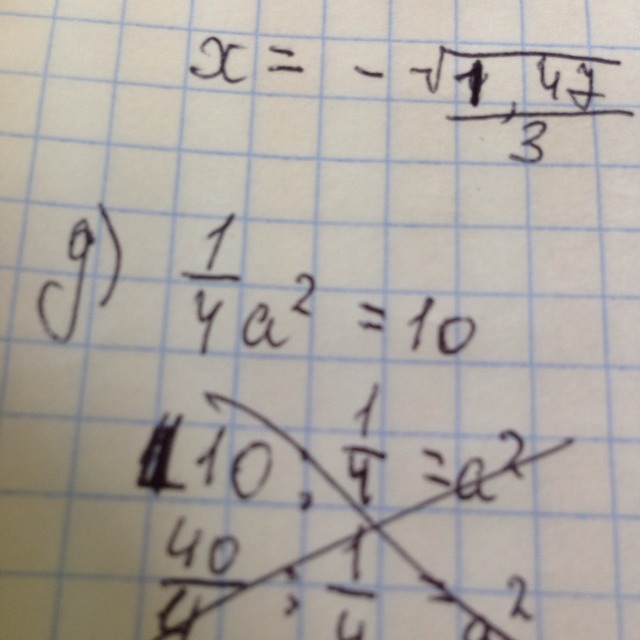 x = - √1,47 / 3
g) 1/4 a² = 10
10 : 1/4 = a²
40/4 : 1/4 = a²